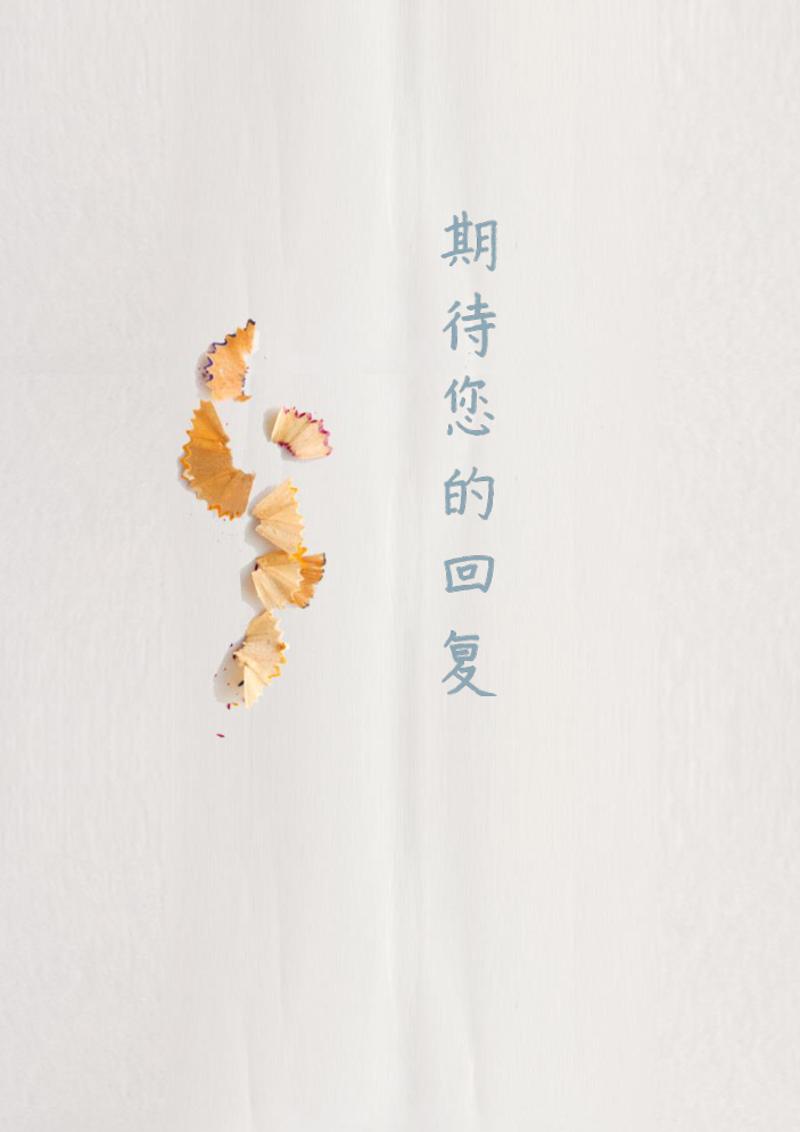 期待您的回复